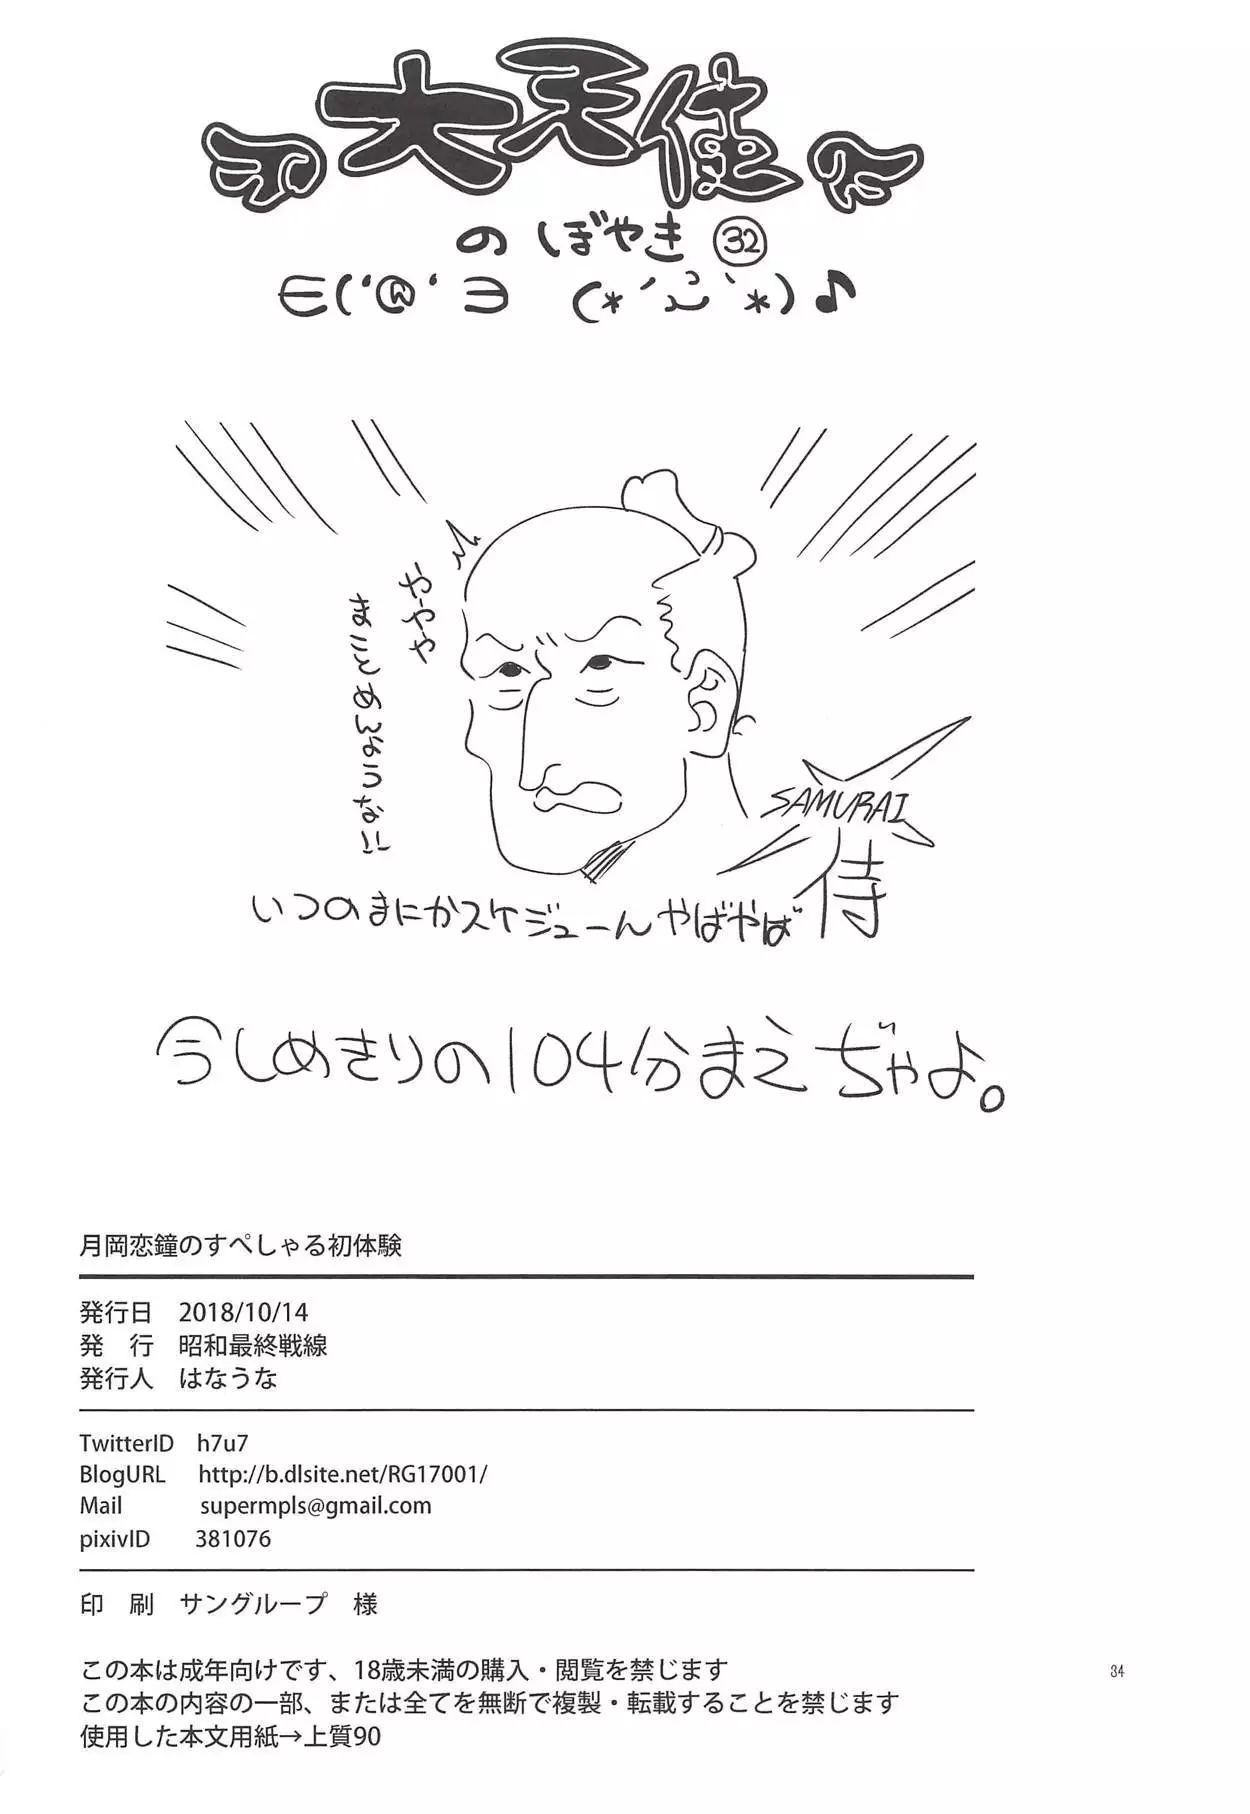 大天使
のぼやき ㉜
∈('@'∋ (*´ ｀*)♪
ややや
まことめんような!!
SAMURAI
侍
いつのまにかスケジューんやばやば
今しめきりの104分まえぢゃよ。
月岡恋鐘のすぺしゃる初体験
発行日 2018/10/14
発 行 昭和最終戦線
発行人 はなうな
TwitterID h7u7
BlogURL http://b.dlsite.net/RG17001/
Mail supermpls@gmail.com
pixivID 381076
印 刷 サングループ 様
この本は成年向けです、18歳未満の購入・閲覧を禁じます
この本の内容の一部、または全てを無断で複製・転載することを禁じます
使用した本文用紙→上質90
34